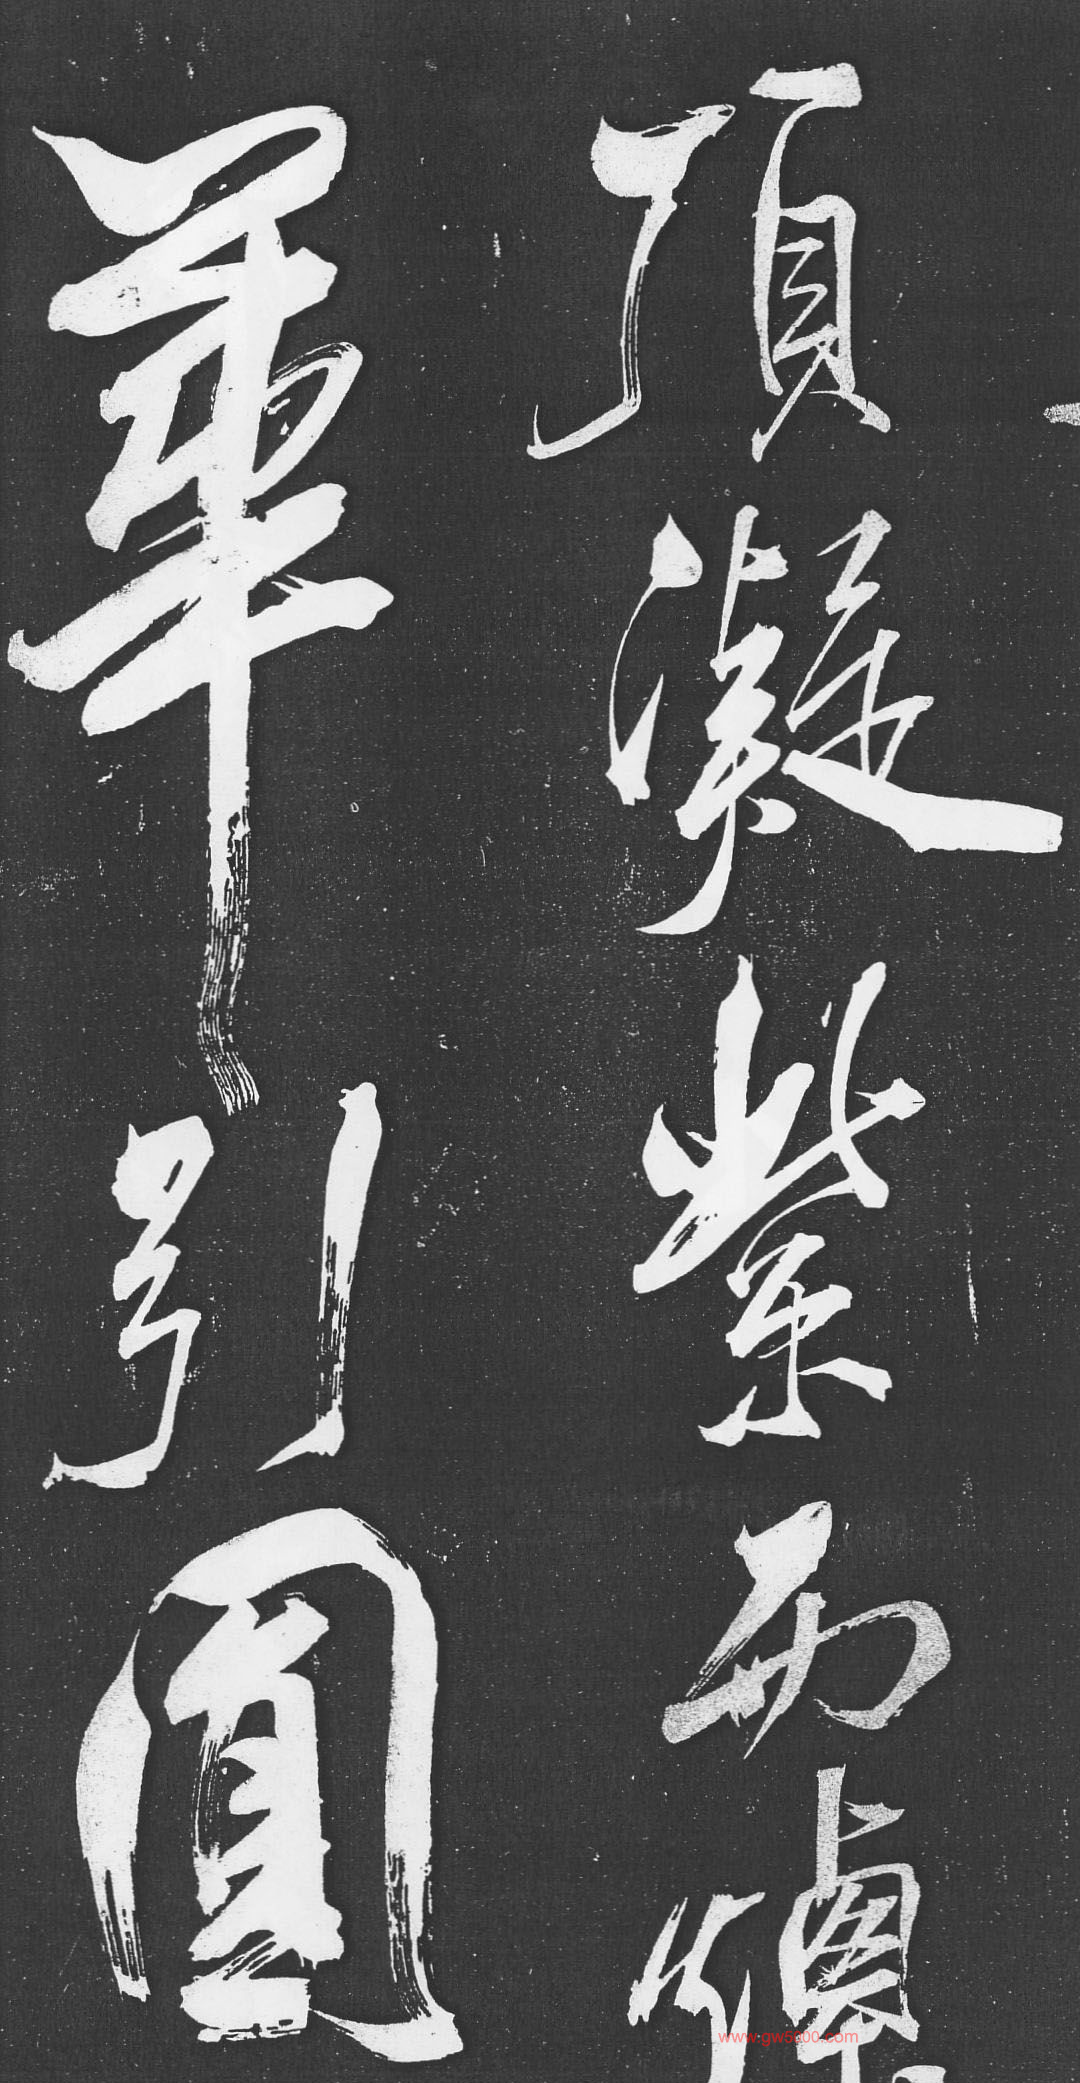 頂凝紫而煙
華引圓
www.gw5000.com